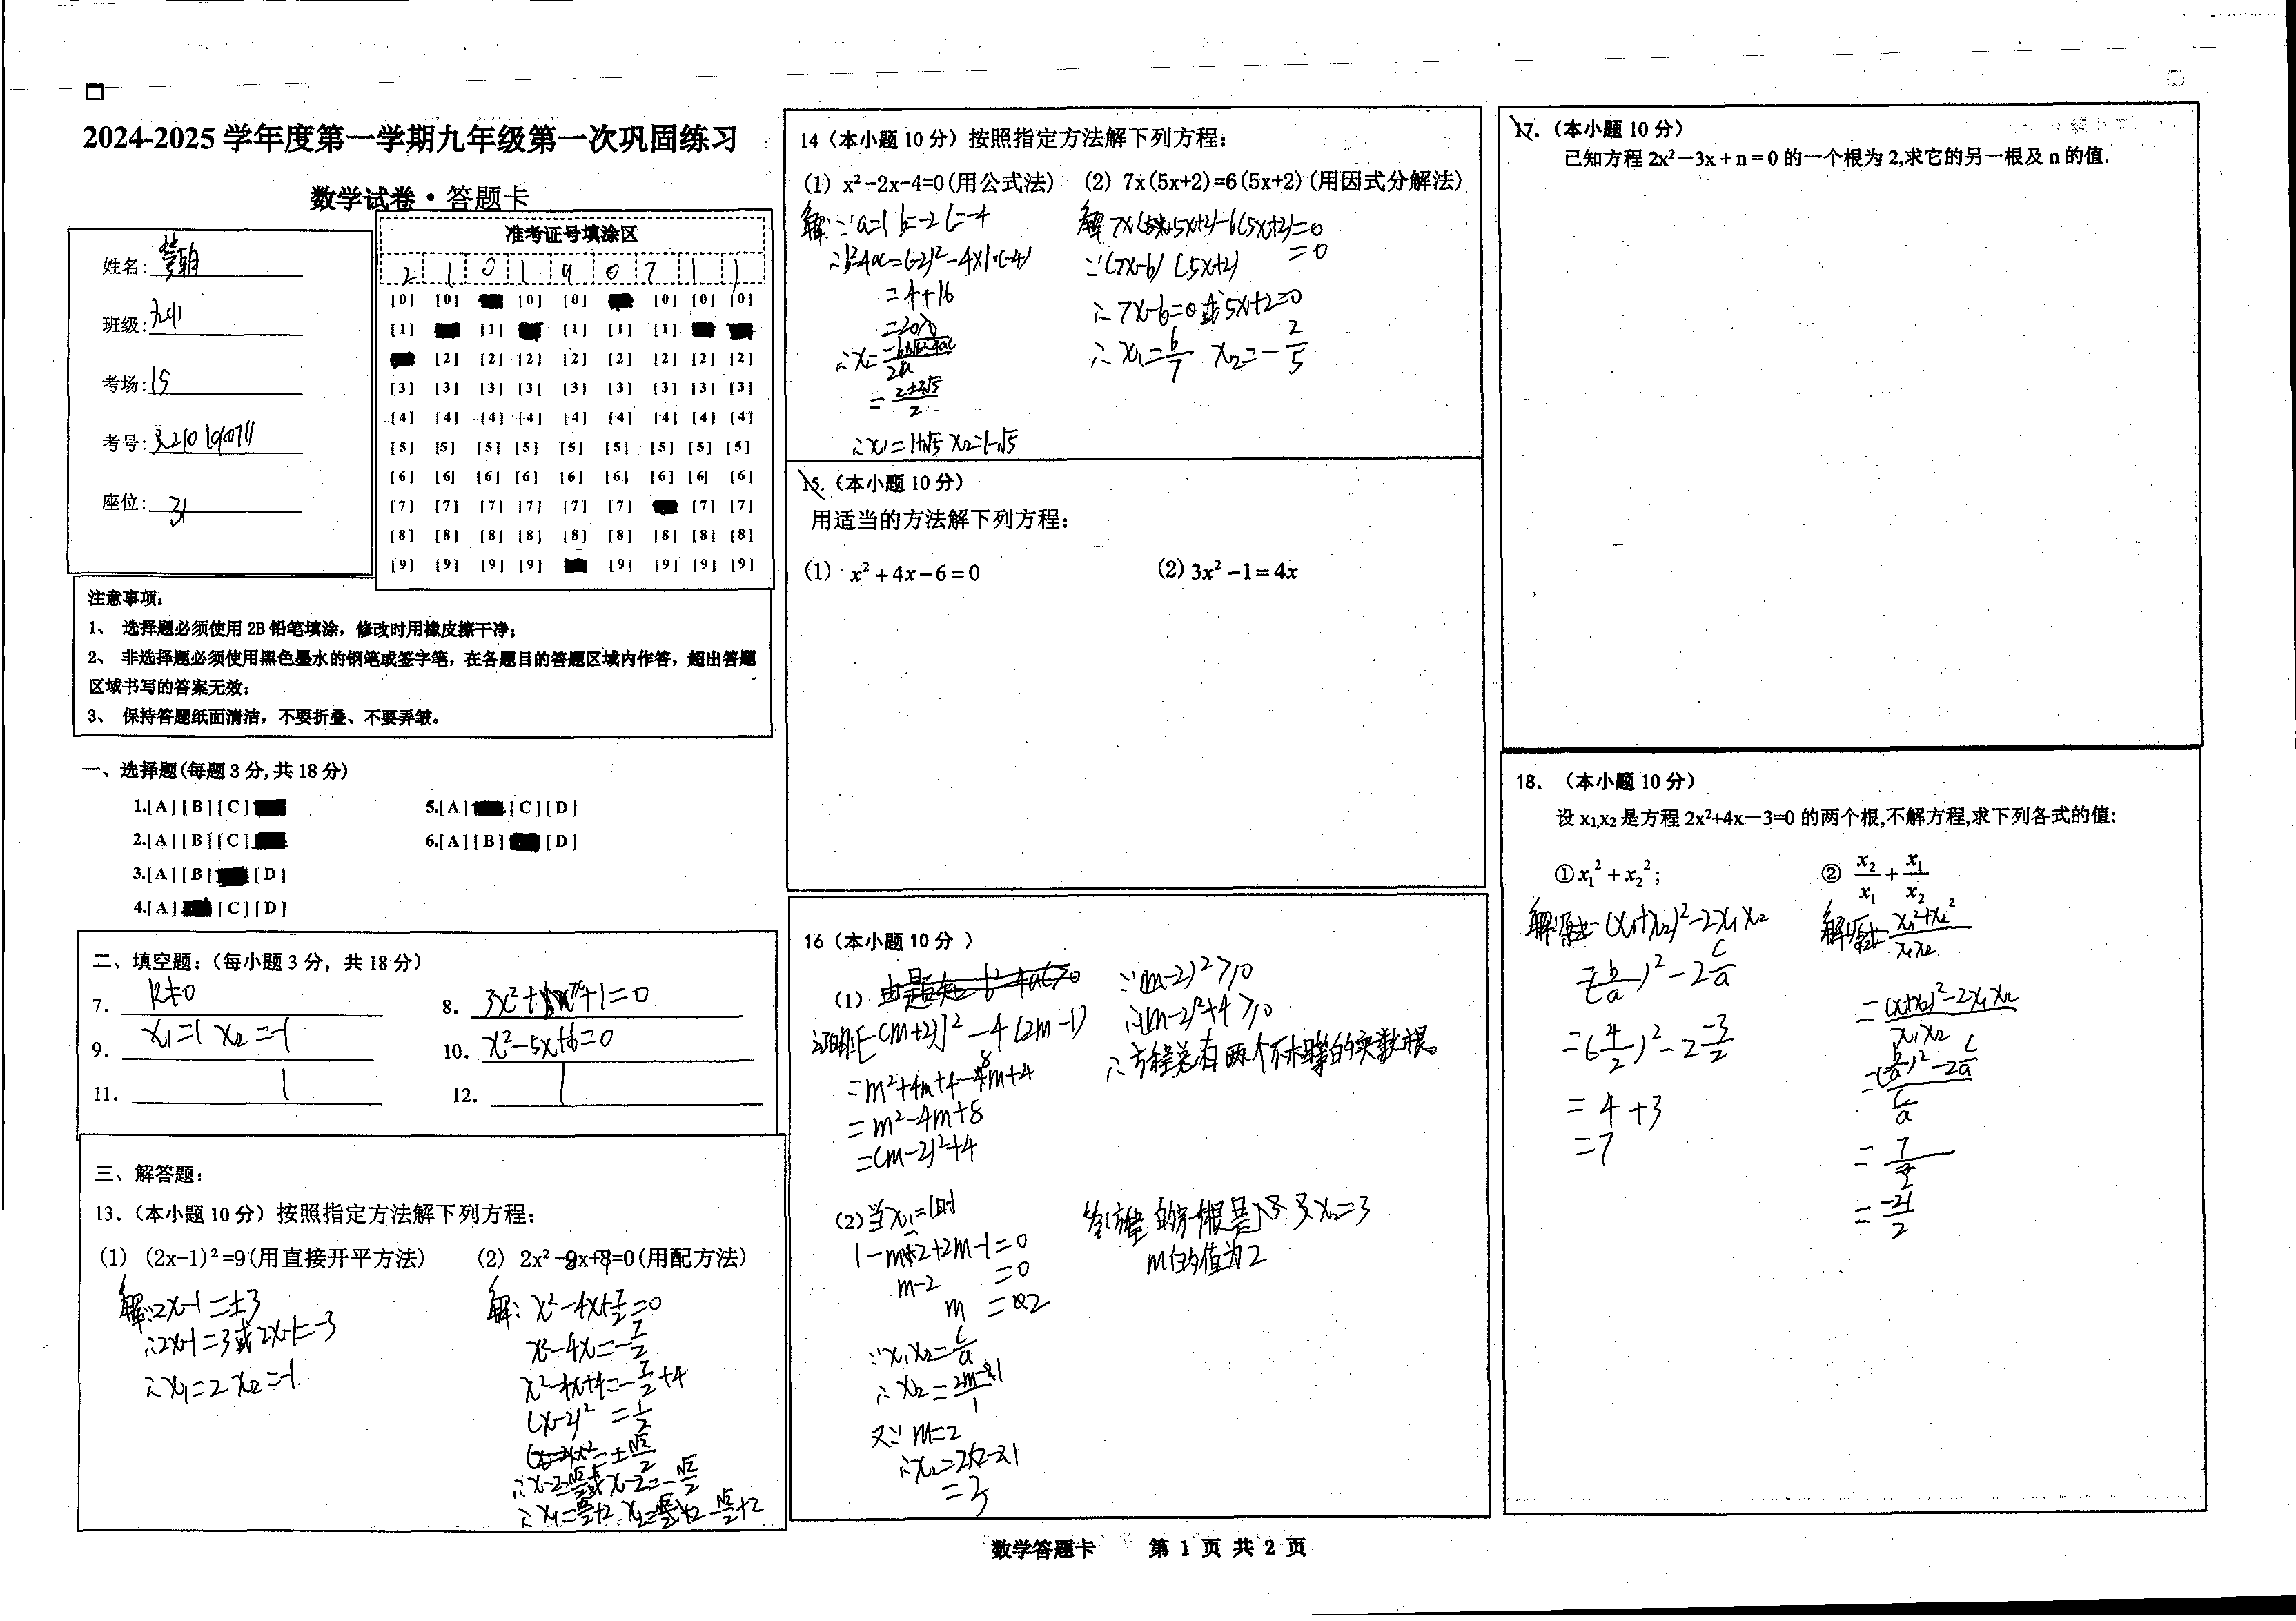 2024-2025 学年度第一学期九年级第一次巩固练习
数学试卷·答题卡
姓名:
班级:
考场: 15
考号:
座位: 31
准考证号填涂区
2 1 0 1 9 0 7 1 1
[0] [0] [0] [0] [0] [0] [0]
[1] [1] [1] [1] [1]
[2] [2] [2] [2] [2] [2] [2] [2]
[3] [3] [3] [3] [3] [3] [3] [3] [3]
[4] [4] [4] [4] [4] [4] [4] [4] [4]
[5] [5] [5] [5] [5] [5] [5] [5] [5]
[6] [6] [6] [6] [6] [6] [6] [6] [6]
[7] [7] [7] [7] [7] [7] [7] [7]
[8] [8] [8] [8] [8] [8] [8] [8] [8]
[9] [9] [9] [9] [9] [9] [9] [9]
注意事项:
1、 选择题必须使用 2B 铅笔填涂，修改时用橡皮擦干净;
2、 非选择题必须使用黑色墨水的钢笔或签字笔，在各题目的答题区域内作答，超出答题
区域书写的答案无效;
3、 保持答题纸面清洁，不要折叠、不要弄皱。
一、选择题(每题 3 分,共 18 分)
1.[A][B][C] 5.[A] [C][D]
2.[A][B][C] 6.[A][B] [D]
3.[A][B] [D]
4.[A] [C][D]
二、填空题:（每小题 3 分，共 18 分）
7. k≠0 8.
9. x₁=1 x₂=-1 10. x²-5x+6=0
11. 1 12. 1
三、解答题:
13.（本小题 10 分）按照指定方法解下列方程:
(1) (2x-1)²=9(用直接开平方法)
解:2x-1=±3
∴2x-1=3或2x-1=-3
∴x₁=2 x₂=-1
(2) 2x²-8x+7=0(用配方法)
解: x²-4x+7/2=0
x²-4x=-7/2
x²-4x+4=-7/2+4
(x-2)²=1/2
∴x-2=√2/2或x-2=-√2/2
14（本小题 10 分）按照指定方法解下列方程:
(1) x²-2x-4=0(用公式法)
解:∵a=1 b=-2 c=-4
∴b²-4ac=(-2)²-4×1·(-4)
=4+16
=20>0
∴x=(-b±√b²-4ac)/2a
=(2±2√5)/2
∴x₁=1+√5 x₂=1-√5
(2) 7x(5x+2)=6(5x+2)(用因式分解法)
∵(7x-6)(5x+2) =0
∴7x-6=0或5x+2=0
∴x₁=6/7 x₂=-2/5
15.（本小题 10 分）
用适当的方法解下列方程:
(1) x²+4x-6=0 (2) 3x²-1=4x
16（本小题 10 分 ）
(1)
证明:[-(m+2)]²-4(2m-1)
=m²+4m+4-8m+4
=m²-4m+8
=(m-2)²+4
∵(m-2)²≥0
∴(m-2)²+4≥0
∴方程总有两个不相等的实数根。
(2)当x₁=1时
1-m+2+2m-1=0
m-2 =0
m =2
∵x₁x₂=c/a
∴x₂=(2m-1)/1
又∵m=2
∴x₂=2×2-1
=3
m的值为2
17.（本小题 10 分）
已知方程 2x²-3x+n=0 的一个根为 2,求它的另一根及 n 的值.
18. （本小题 10 分）
设 x₁,x₂ 是方程 2x²+4x-3=0 的两个根,不解方程,求下列各式的值:
①x₁²+x₂²;
解:原式=(x₁+x₂)²-2x₁x₂
=(-b/a)²-2c/a
=(-4/2)²-2·-3/2
=4+3
=7
② x₂/x₁+x₁/x₂
解:原式=(x₁²+x₂²)/x₁x₂
=((x₁+x₂)²-2x₁x₂)/x₁x₂
=((-b/a)²-2c/a)/(c/a)
数学答题卡 第 1 页 共 2 页